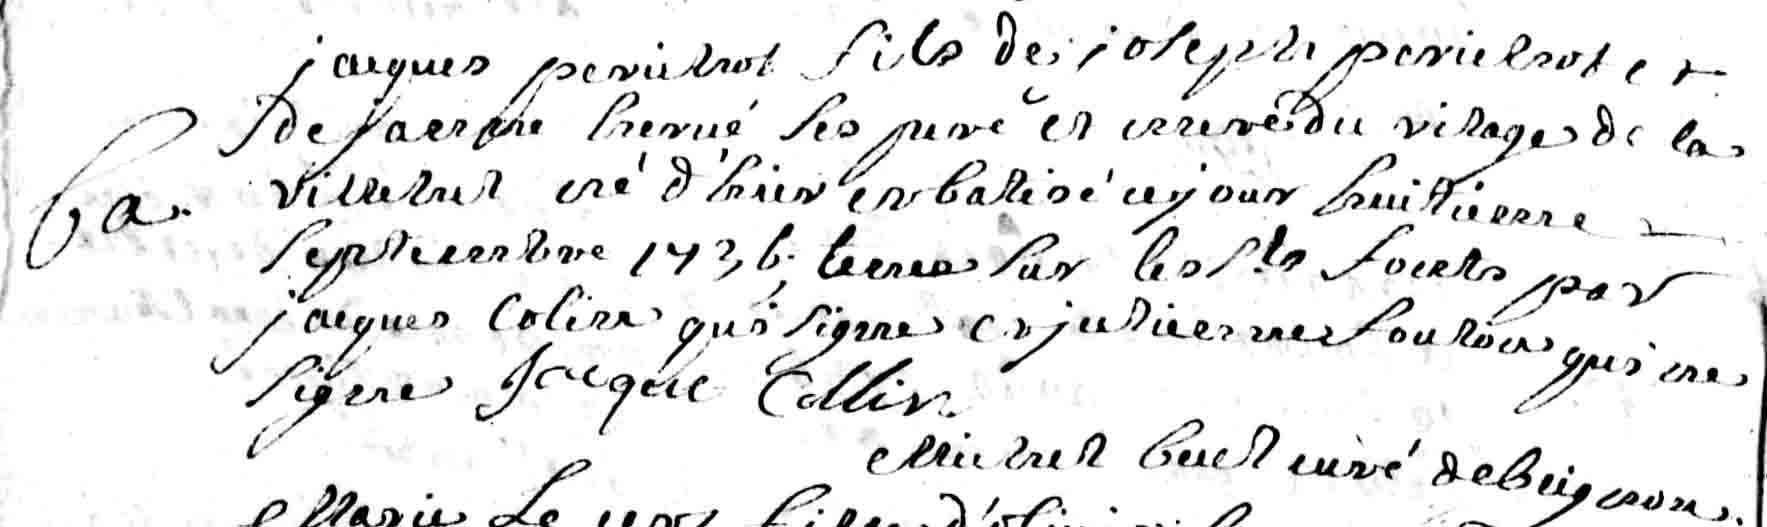 jacques perichot fils de joseph perichot et
de jacquine hervé ses pere et mere du vilage de la
ba. né d'hier et batisé ce jour huitieme
septembre 1736 tenu sur les sts fonts par
jacques Colin qui signe et julienne qui ne
signe Jacque Collin
Michel buet curé de beignon
Marie Le fille d'